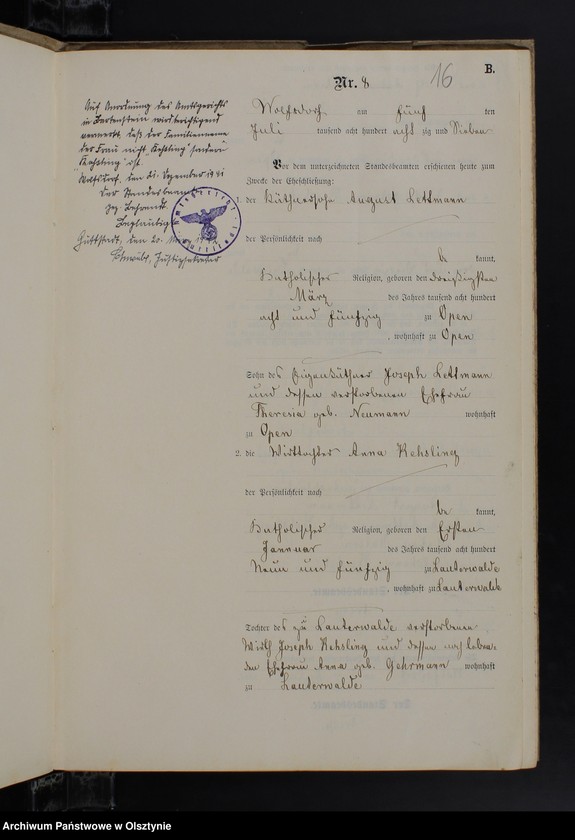 B.
Nr. 8
16
Auf Anordnung des Amtsgerichts
in Bartenstein wird berichtigend
vermerkt, daß der Familienname
der Frau nicht "Rehsling" sondern
ist.
Wolfsdorf, den 21. Dezember 1941
Der Standesbeamte
gez. Behrendt.
Beglaubigt
Guttstadt, den 20.
Justizsekretär
Wolfsdorf am fünf ten
Juli tausend acht hundert acht zig und Sieben
Vor dem unterzeichneten Standesbeamten erschienen heute zum
Zwecke der Eheschließung:
1. der Käthnersohn August Lettmann
der Persönlichkeit nach
be kannt,
katholischer Religion, geboren den dreißigsten
März des Jahres tausend acht hundert
acht und fünfzig zu Open
, wohnhaft zu Open
Sohn des Eigenkäthner Joseph Lettmann
und dessen verstorbenen Ehefrau
Theresia geb. Neumann wohnhaft
zu Open
2. die Wirttochter Anna Rehsling
der Persönlichkeit nach
be kannt,
katholischer Religion, geboren den Ersten
Januar des Jahres tausend acht hundert
Neun und fünfzig zu Lauterwalde
, wohnhaft zu Lauterwalde
Tochter des zu Lauterwalde verstorbenen
Wirth Joseph Rehsling und dessen noch leben-
den Ehefrau Anna geb. Gehrmann wohnhaft
zu Lauterwalde
Archiwum Państwowe w Olsztynie